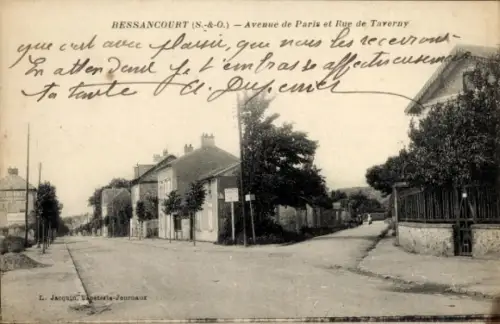 BESSANCOURT (S.-&-O.) — Avenue de Paris et Rue de Taverny
que c'est avec plaisir, que nous les recevront
En attendant je t'embrasse affectueusement
ta tante
L. Jacquin, Journaux